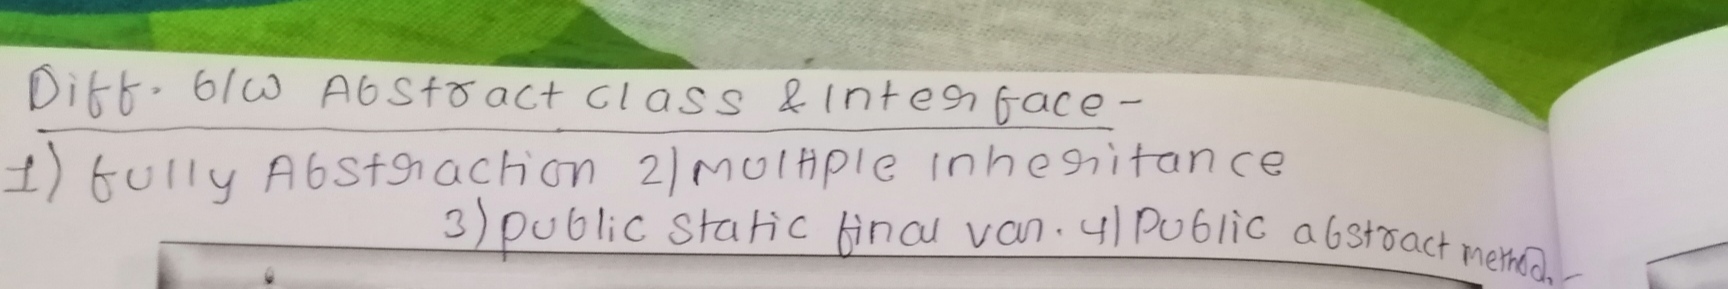 Diff. b/w Abstract class & Interface -
1) fully Abstraction 2) multiple inheritance
3) public static final var. 4) public abstract method.